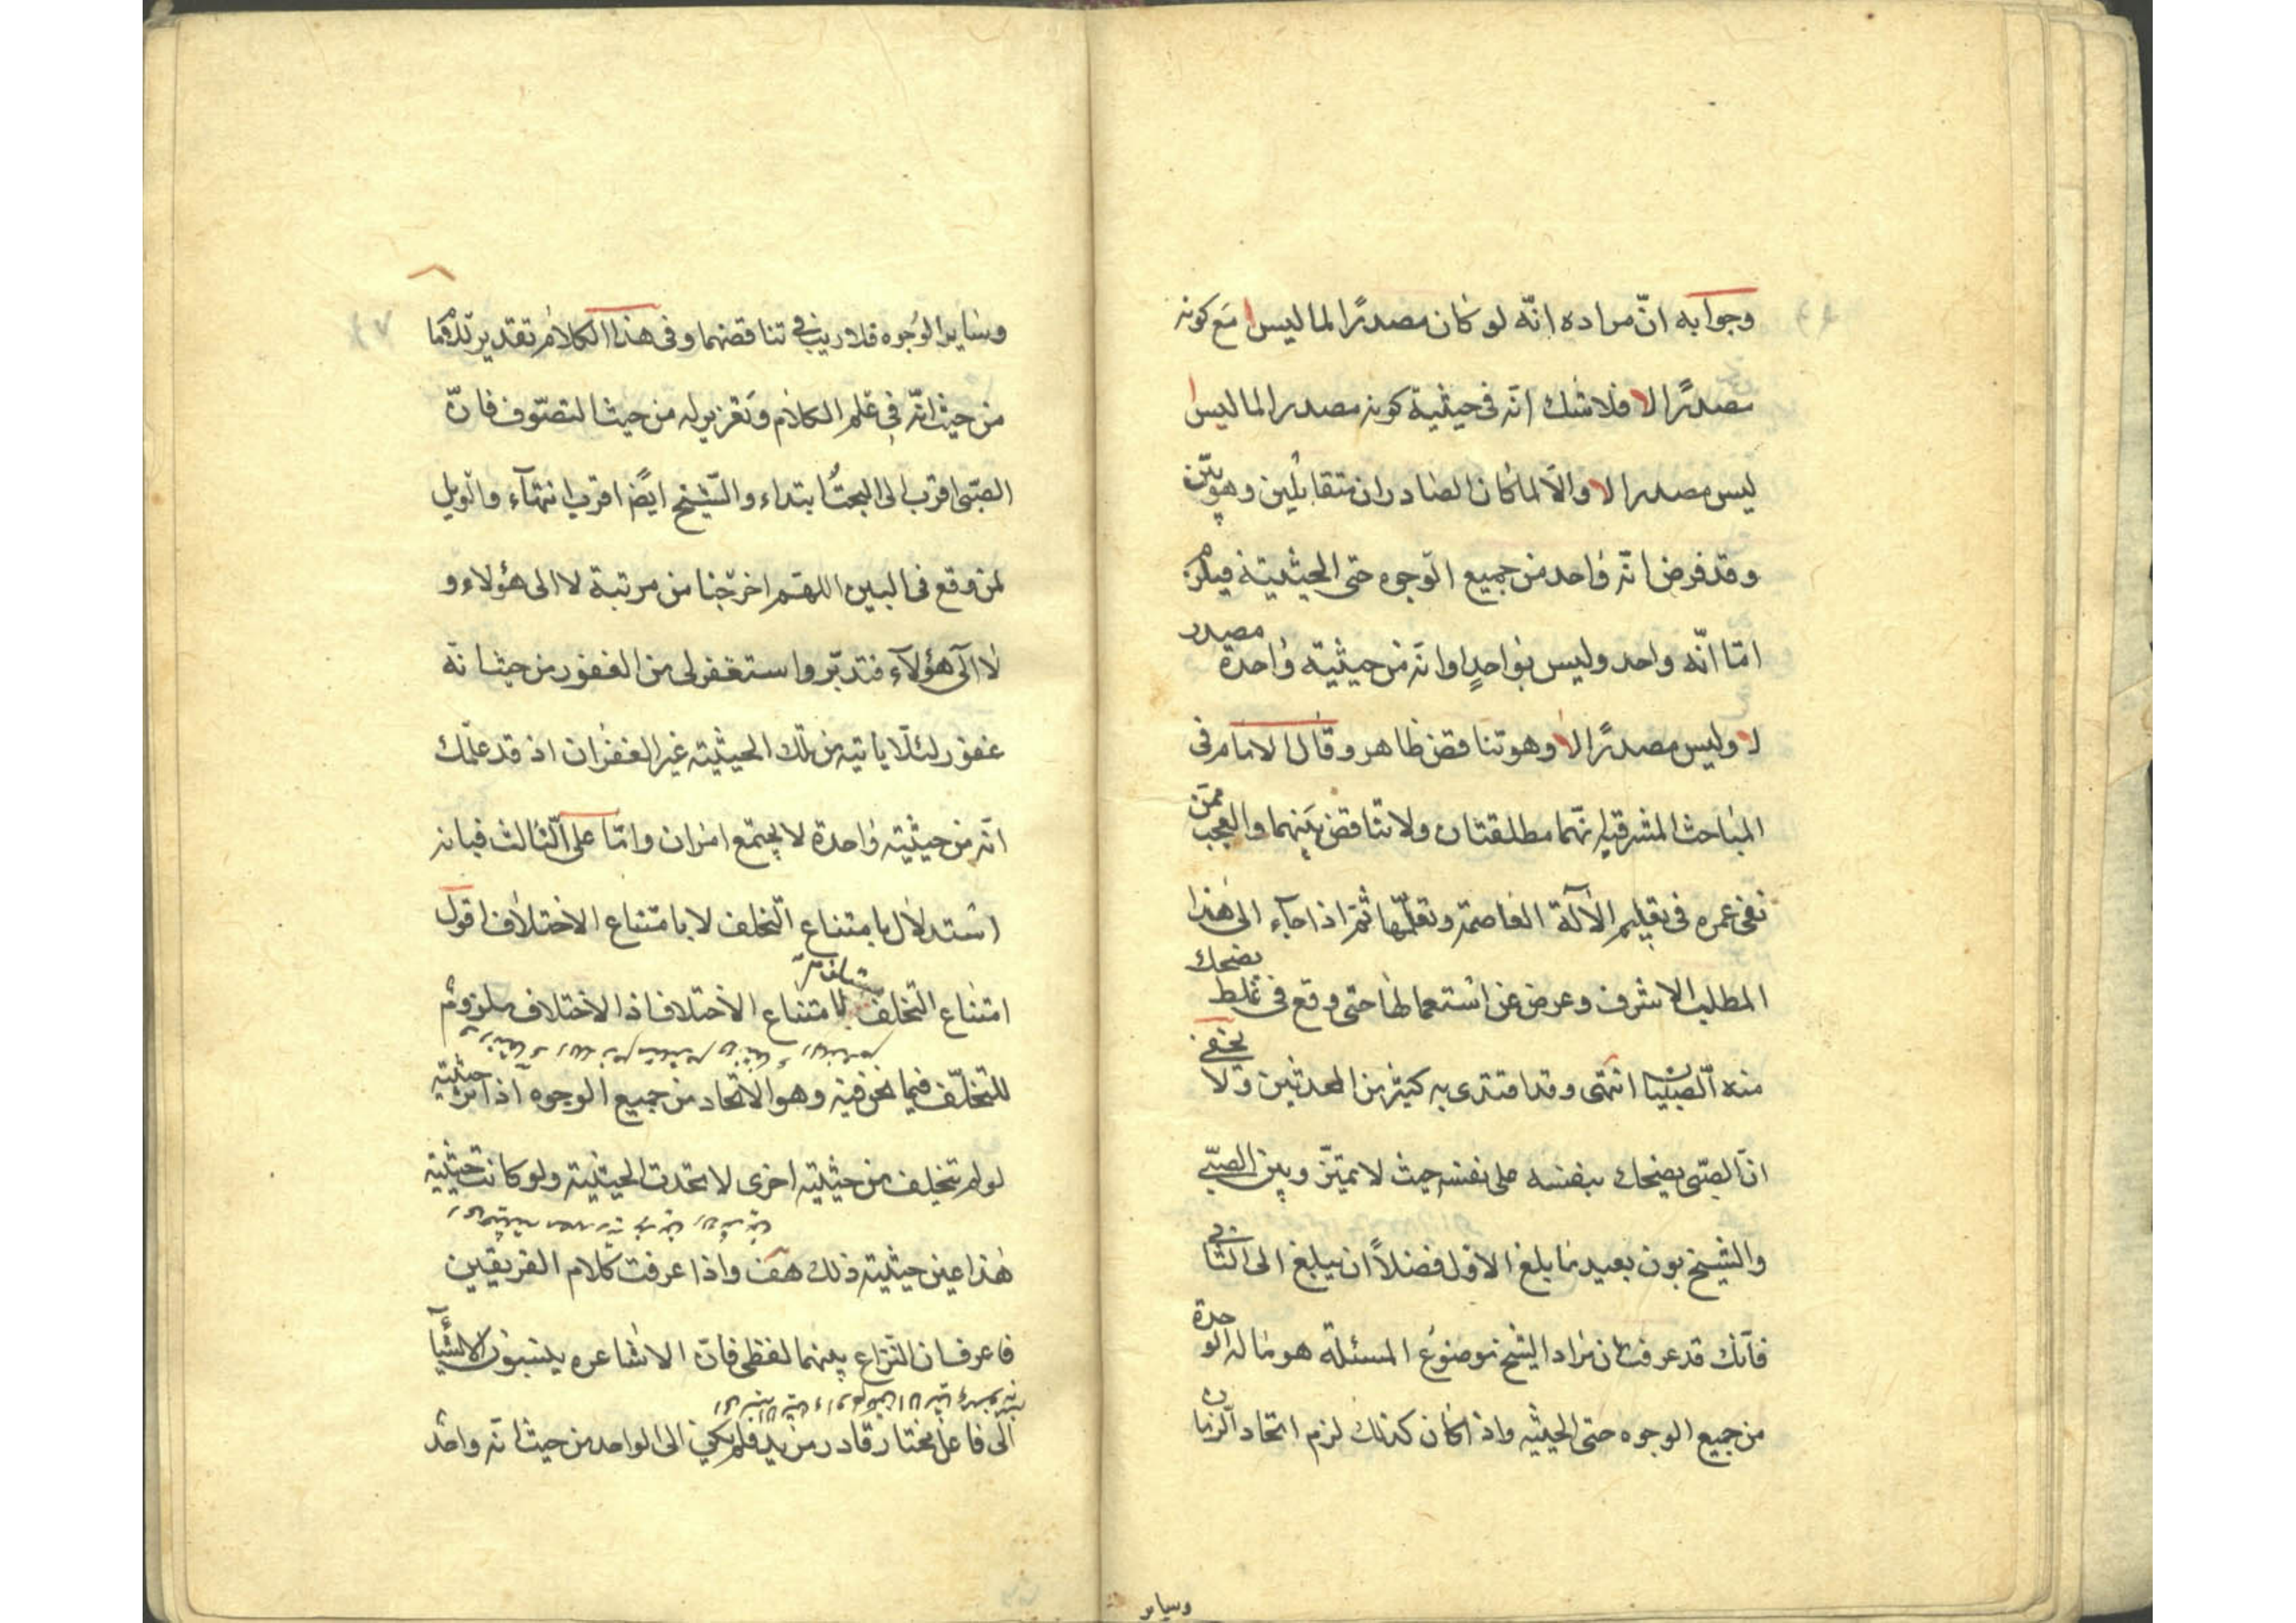 وجوابه انّ مراده انّه لو كان مصدرًا لما ليس ا مَع كونه
مصدرًا لا فلا شك انّه فى حيثية كونه مصدرا لما ليس ا
ليس مصدرا لا والّا لما كان الصادران متقابلين وهو بيّن
وقد فرض انّه واحد من جميع الوجوه حتى الحيثية فيلزم
امّا انّه واحد وليس بواحدٍ او انّه من حيثية واحدة مصدر
لا وليس مصدرًا لا وهو تناقض ظاهر وقال الامام فى
المباحث المشرقية انّهما مطلقتان ولا تناقض بينهما والعجب ممّن
نفى عمره فى تعليم الآلة العاصمة وتعلّمها ثمّ اذا جاء الى هذا
المطلب الاشرف وعرض عن استعمالها حتى وقع فى غلط يضحك
منه الصبيان انتهى وقد اقتدى به كثير من المحدثين ولا يخفى
انّ الصبّى يضحك بنفسه على نفسه حيث لا تميّز وبين الصبّى
والشيخ بون بعيد ما بلغ الاول فضلاً ان يبلغ الى الثانى
فانّك قد عرفت ان مراد الشيخ موضوع المسئلة هو ما له الوحدة
من جميع الوجوه حتى الحيثيه واذا كان كذلك لزم اتحاد الزمان
وساير
وساير الوجوه فلا ريب فى تناقضهما وفى هذا الكلام تقدير تذمّ كما
من حيث انّه فى علم الكلام وتعزير له من حيث التصوّف فانّ
الصبّى اقرب الى البحث ابتداء والشّيخ ايضًا اقرب انتهآء والويل
لمن وقع فى البين اللهّم اخرجنا من مرتبة لا الى هؤلاء و
لا الى هؤلآء فتدبّر واستغفر لى من الغفور من حيث انّه
غفور لئلّا ياتيه من تلك الحيثية غير الغفران اذ قد علمك
انّه من حيثية واحدة لا يجتمع امران وامّا على الثالث فبانه
استدلال بامتناع التخلف لا بامتناع الاختلاف اقول
امتناع التخلف لامتناع الاختلاف اذ الاختلاف ملزوم
للتخلّف فيما نحن فيه وهو الاتحاد من جميع الوجوه اذ اثر حيثية
لو لم تتخلف من حيثية اخرى لاتحدت الحيثية ولو كانت حيثية
هذا عين حيثية ذلك هف واذا عرفت كلام الفريقين
فاعرف ان النزاع بينهما لفظى فانّ الاشاعره ينسبون الاشيآء
الى فاعل مختار قادر مريد فلم يكن الى الواحد من حيث انّه واحد